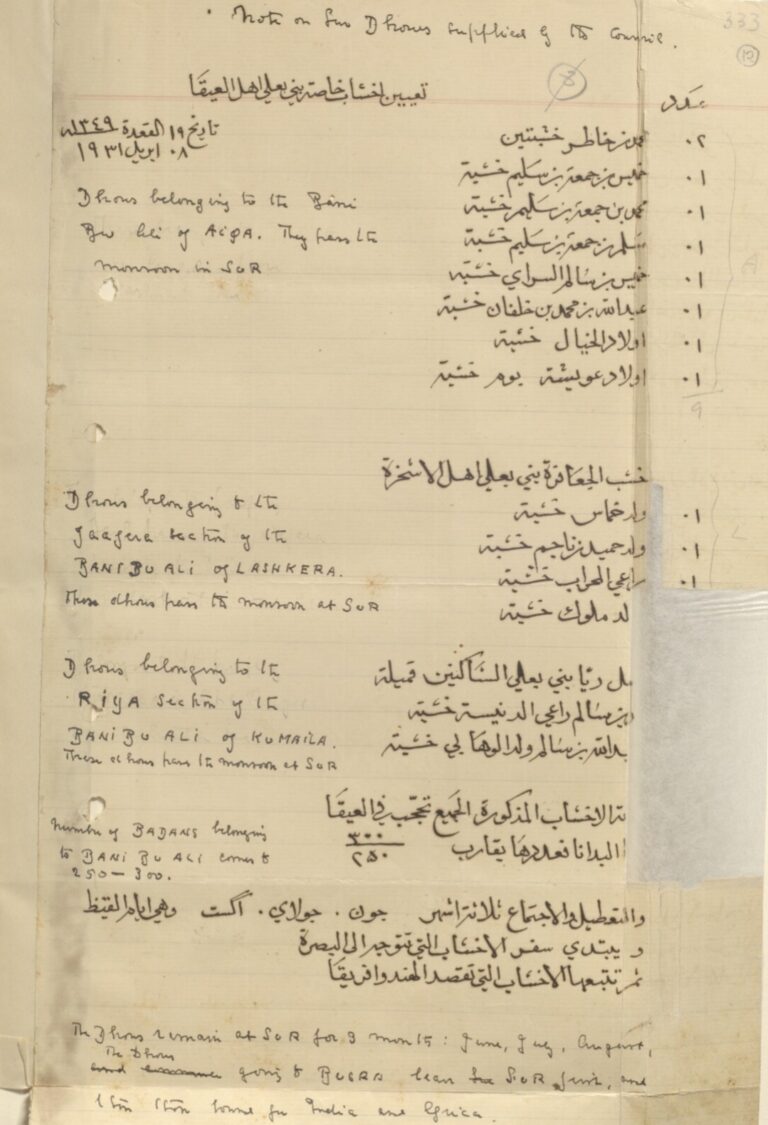 Note on Sur Dhows supplied by the Council.
333
12
3
تعيين اخشاب خاصة بني بعلي اهل العيقا
عدد
تاريخ ١٩ القعدة ١٣٤٩
٠٨ ابريل ١٩٣١
محمد بن خاطر خشبتين ٠٢
خميس بن جمعة بن سليم خشبة ٠١
Dhows belonging to the Bani
محمد بن جمعة بن سليم خشبة ٠١
Bu Ali of AIQA. They pass the
سلم بن جمعة بن سليم خشبة ٠١
monsoon in SUR
خميس بن سالم السراي خشبة ٠١
عبدالله بن محمد بن خلفان خشبة ٠١
اولاد الخيال خشبة ٠١
اولاد عويشة يوم خشبة ٠١
9
خشب الجعافرة بني بعلي اهل الاشخرة
Dhows belonging to the
ولد خماس خشبة ٠١
Jaafera section of the
ولد حميد بن ناجم خشبة ٠١
BANI BU ALI of LASHKERA.
راعي المحراب خشبة ٠١
These dhows pass the monsoon at SUR
لد ملوك خشبة
Dhows belonging to the
ل ريا بني بعلي الساكنين قميلة
RIYA section of the
بن سالم راعي الدنيسة خشبة
BANI BU ALI of KUMAILA.
بدالله بن سالم ولد الوهابي خشبة
These dhows pass the monsoon at SUR
الاخشاب المذكورة الجميع تجحب في العيقا
Number of BADANS belonging
البدانا فعددها يقارب ٣٠٠
to BANI BU ALI comes to
٢٥٠
250 – 300.
والتعطيل والاجتماع ثلاثة اشهر جون . جولاي . اگست وهي ايام القيظ
و يبتدي سفر الاخشاب التي تتوجه الى البصرة
ثم تتبعها الاخشاب التي تقصد الهند وافريقا
The Dhows remain at SUR for 3 months: June, July, August,
The Dhows
going to BUSRA leave SUR first, and
then those bound for India and Africa.